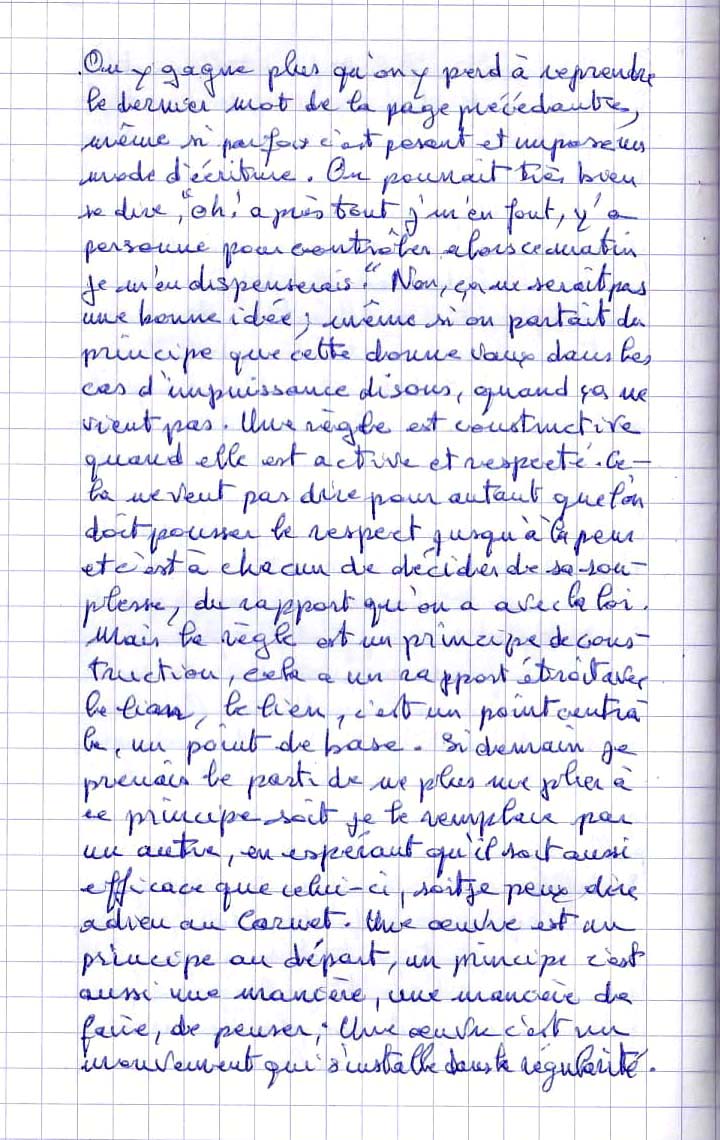 On y gagne plus qu'on y perd à reprendre
le dernier mot de la page précédante,
même si parfois c'est pesant et impose un
mode d'écriture. On pourrait très bien
se dire, "oh! après tout j'm'en fout, y'a
personne pour contrôler alors ce matin
je m'en dispenserais!" Non, ça ne serait pas
une bonne idée; même si on partait du
principe que cette donne vaux dans les
cas d'impuissance disons, quand ça ne
vient pas. Une règle est constructive
quand elle est active et respecté. Ce-
la ne veut pas dire pour autant que l'on
doit pousser le respect jusqu'à la peur
et c'est à chacun de décider de sa sou-
plesse, du rapport qu'on a avec la loi.
Mais la règle est un principe de cons-
truction, cela a un rapport étroit avec
le lien, le lien, c'est un point centra
le, un point de base. Si demain je
prenais le parti de ne plus me plier à
ce principe soit je le remplace par
un autre, en espérant qu'il soit aussi
efficace que celui-ci, soit je peux dire
adieu au Carnet. Une œuvre est un
principe au départ, un principe c'est
aussi une manière, une manière de
faire, de penser; Une œuvre c'est un
mouvement qui s'installe dans la régularité.